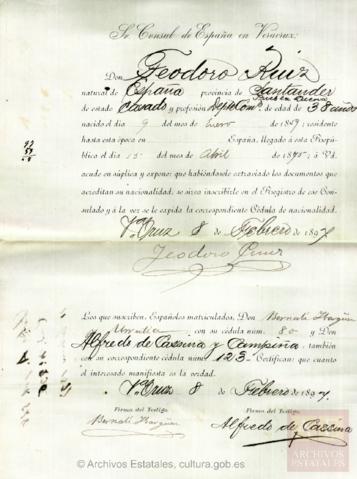 Sr. Consul de España en Veracruz:
Don Teodoro Ruiz
natural de España provincia de Santander
de estado Casado y profesión Depte Com.º de edad de 38 años
nacido el día 9 del mes de Enero de 1859; residente
hasta esta época en España, llegado á esta Repú-
blica el día 15 del mes de Abril de 1875; á Vd.
acude en súplica y expone: que habiéndosele extraviado los documentos que
acreditan su nacionalidad, se sirva inscribirle en el Registro de ese Con-
sulado y á la vez se le expida la correspondiente Cédula de nacionalidad.
V.ª Cruz 8 de Febrero de 1897
Teodoro Ruiz
Los que suscriben, Españoles matriculados, Don Bernabé
con su cédula núm. 80 y Don
Alfredo de Cassina y Campiña, también
con su correspondiente cédula núm. 123- Certifican: que cuanto
el interesado manifiesta es la verdad.
V.ª Cruz 8 de Febrero de 1897.
Firma del Testigo Firma del Testigo
Bernabé Alfredo de Cassina
ARCHIVOS
ESTATALES
© Archivos Estatales, cultura.gob.es